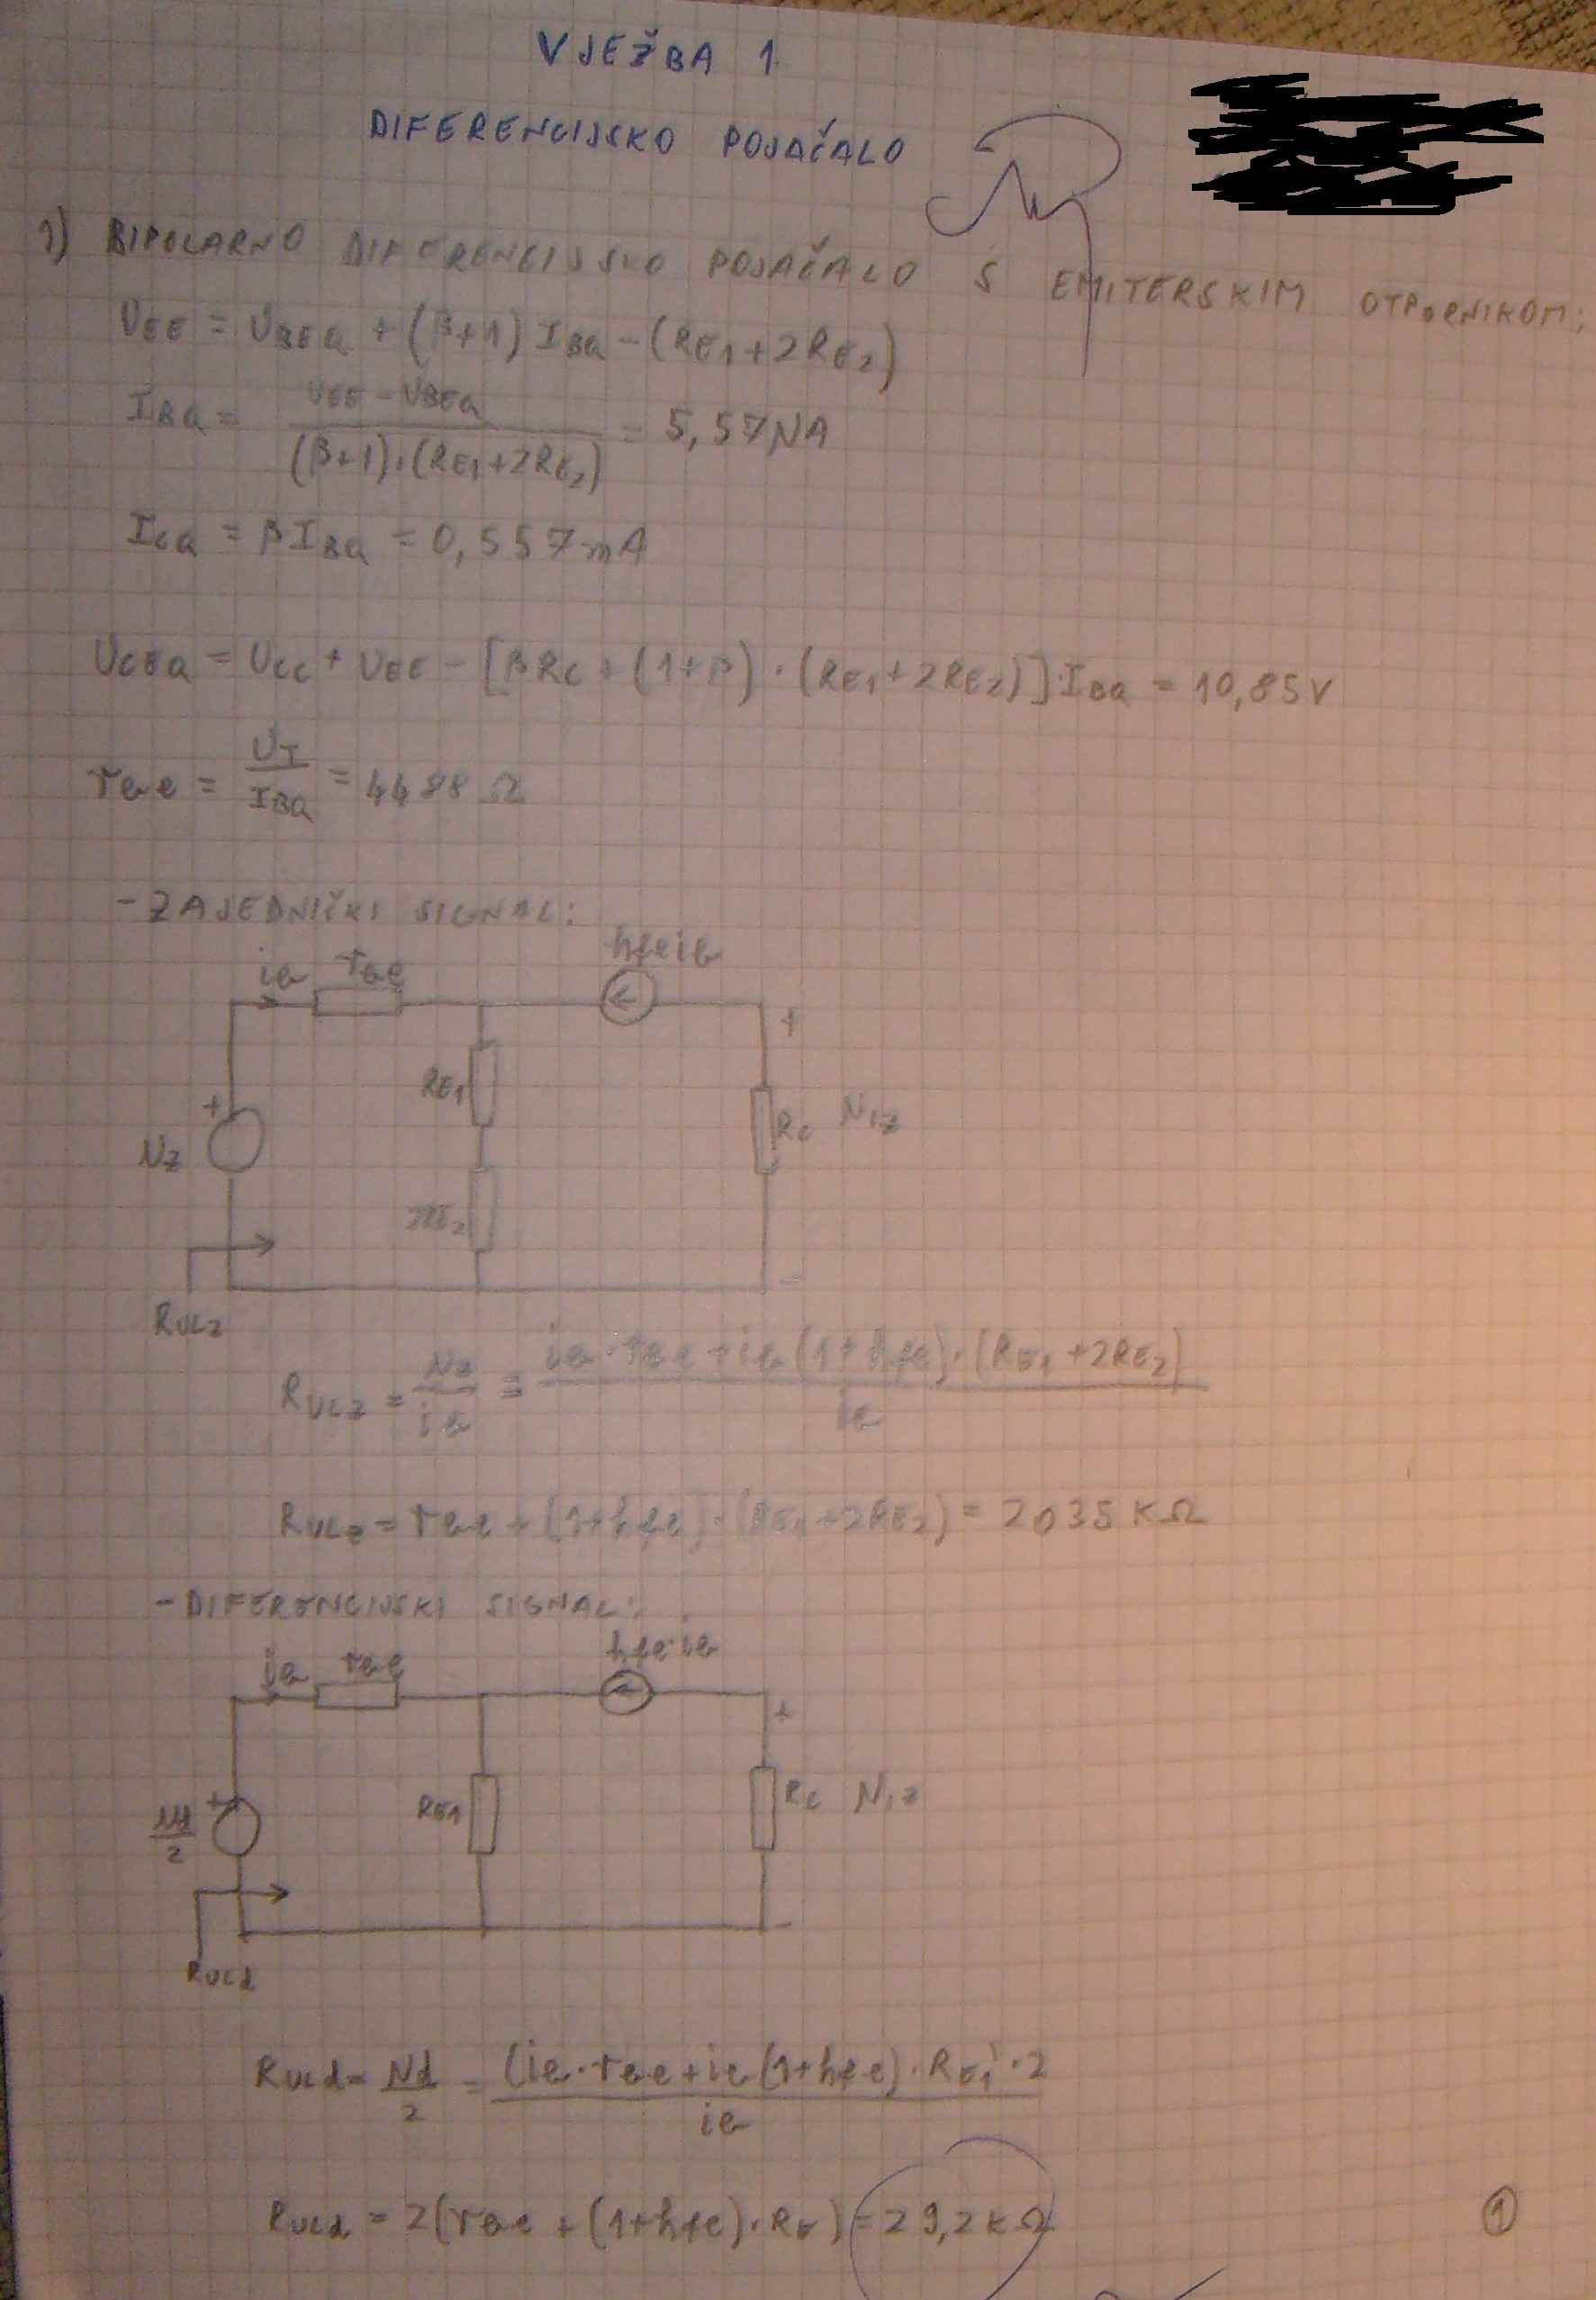 VJEŽBA 1
DIFERENCIJSKO POJAČALO
1) BIPOLARNO DIFERENCIJSKO POJAČALO S EMITERSKIM OTPORNIKOM:
UEE = UBEQ + (β+1) IBQ - (RE1+2RE2)
IBQ = (UEE - UBEQ) / ((β+1)·(RE1+2RE2)) = 5,57 NA
ICQ = βIBQ = 0,557 mA
UCEQ = UCC + UEE - [βRC + (1+β)·(RE1+2RE2)]·IBQ = 10,85V
rbe = UT / IBQ = 4488 Ω
- ZAJEDNIČKI SIGNAL:
ib rbe hfeib
+
RE1
+ RC Niz
Nz
2RE2
-
RULZ
RULZ = Nz / ib = (ib·rbe + ib(1+hfe)·(RE1+2RE2)) / ib
RULZ = rbe + (1+hfe)·(RE1+2RE2) = 2035 KΩ
- DIFERENCIJSKI SIGNAL:
ib rbe hfe·ib
+
+ RE1 RC Niz
Nd/2
-
RULd
RULd = Nd / 2 = (ib·rbe + ib(1+hfe)·RE1)·2 / ib
RULd = 2(rbe + (1+hfe)·RE) = 29,2 kΩ
1